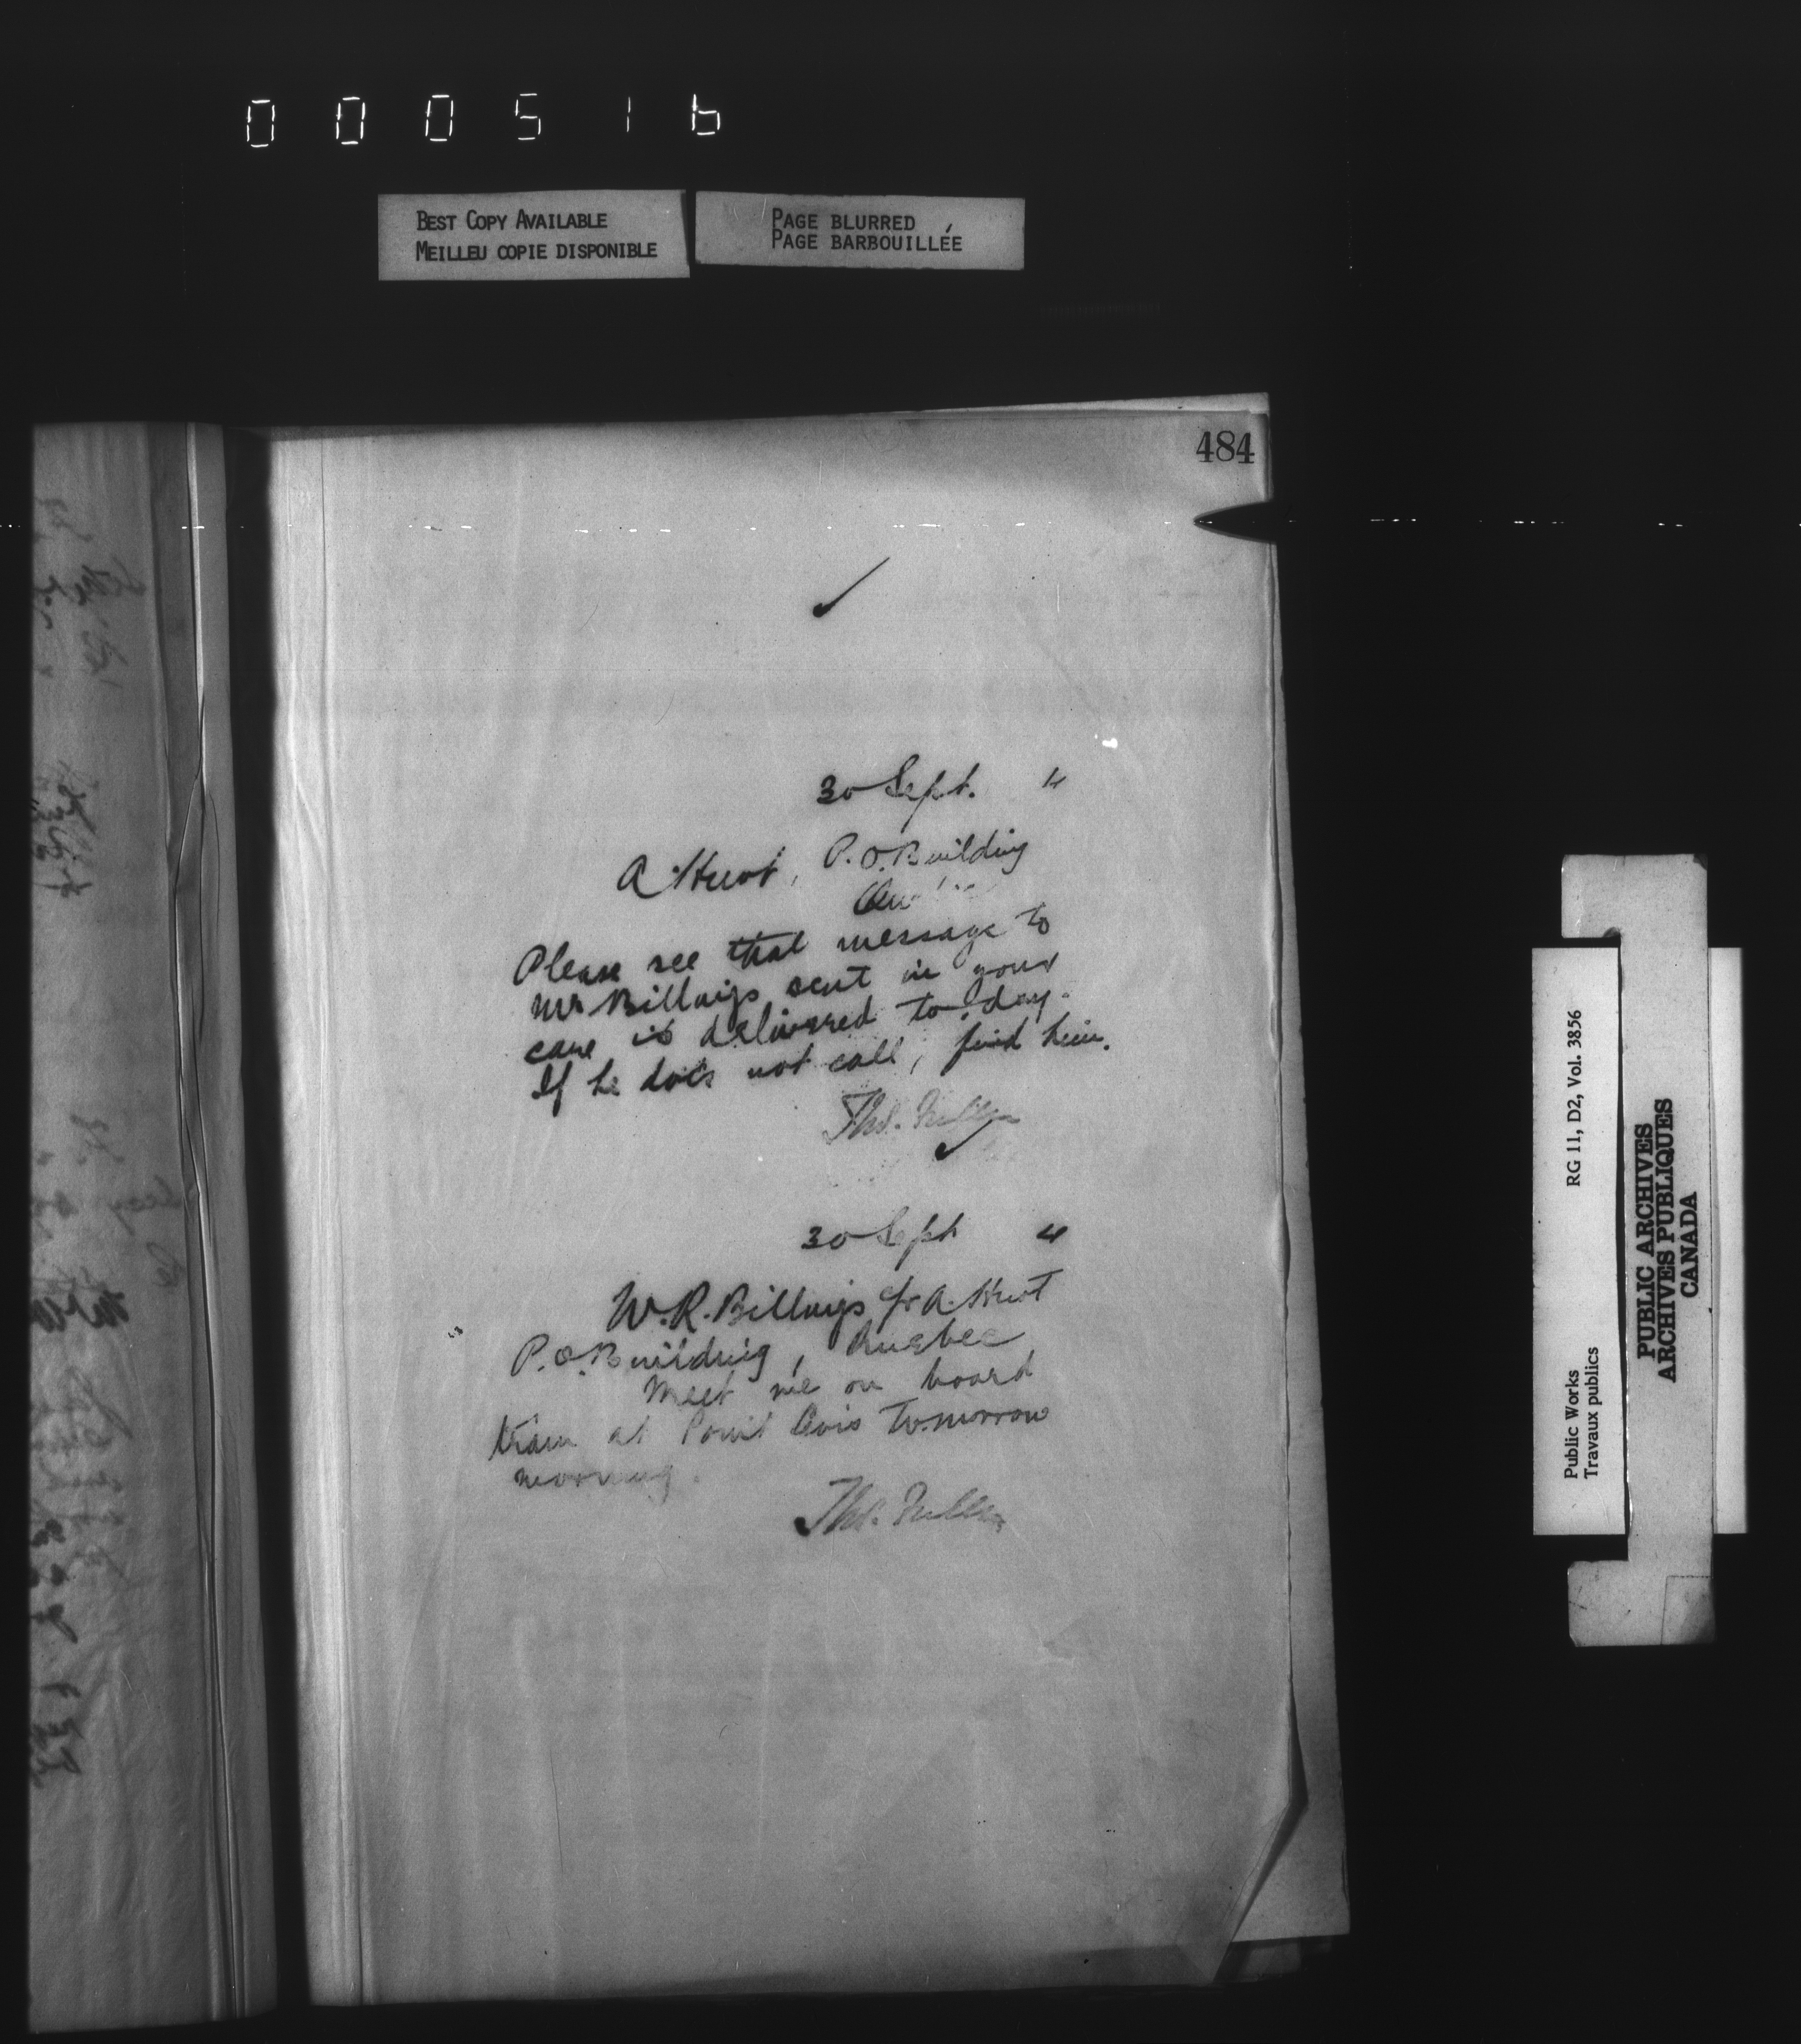 000516
BEST COPY AVAILABLE
MEILLEU COPIE DISPONIBLE
PAGE BLURRED
PAGE BARBOUILLÉE
484
30 Sept. 4
A Huot, P.O. Building
Please see that message to
Mr Billings sent in your
care is delivered to-day.
If he does not call, find him.
Thos. Fuller
30 Sept 4
W.R. Billings c/o A. Huot
P.O. Building, Quebec
Meet me on board
train at Point Levis to-morrow
morning.
Thos. Fuller
Public Works
Travaux publics
RG 11, D2, Vol. 3856
PUBLIC ARCHIVES
ARCHIVES PUBLIQUES
CANADA